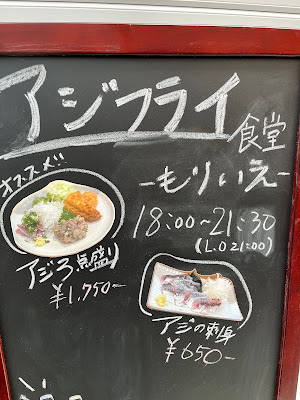 アジフライ
食堂
オススメ
-もりいえ-
18:00~21:30
(L.O 21:00)
アジ3点盛り
¥1,750-
アジの刺身
¥650-